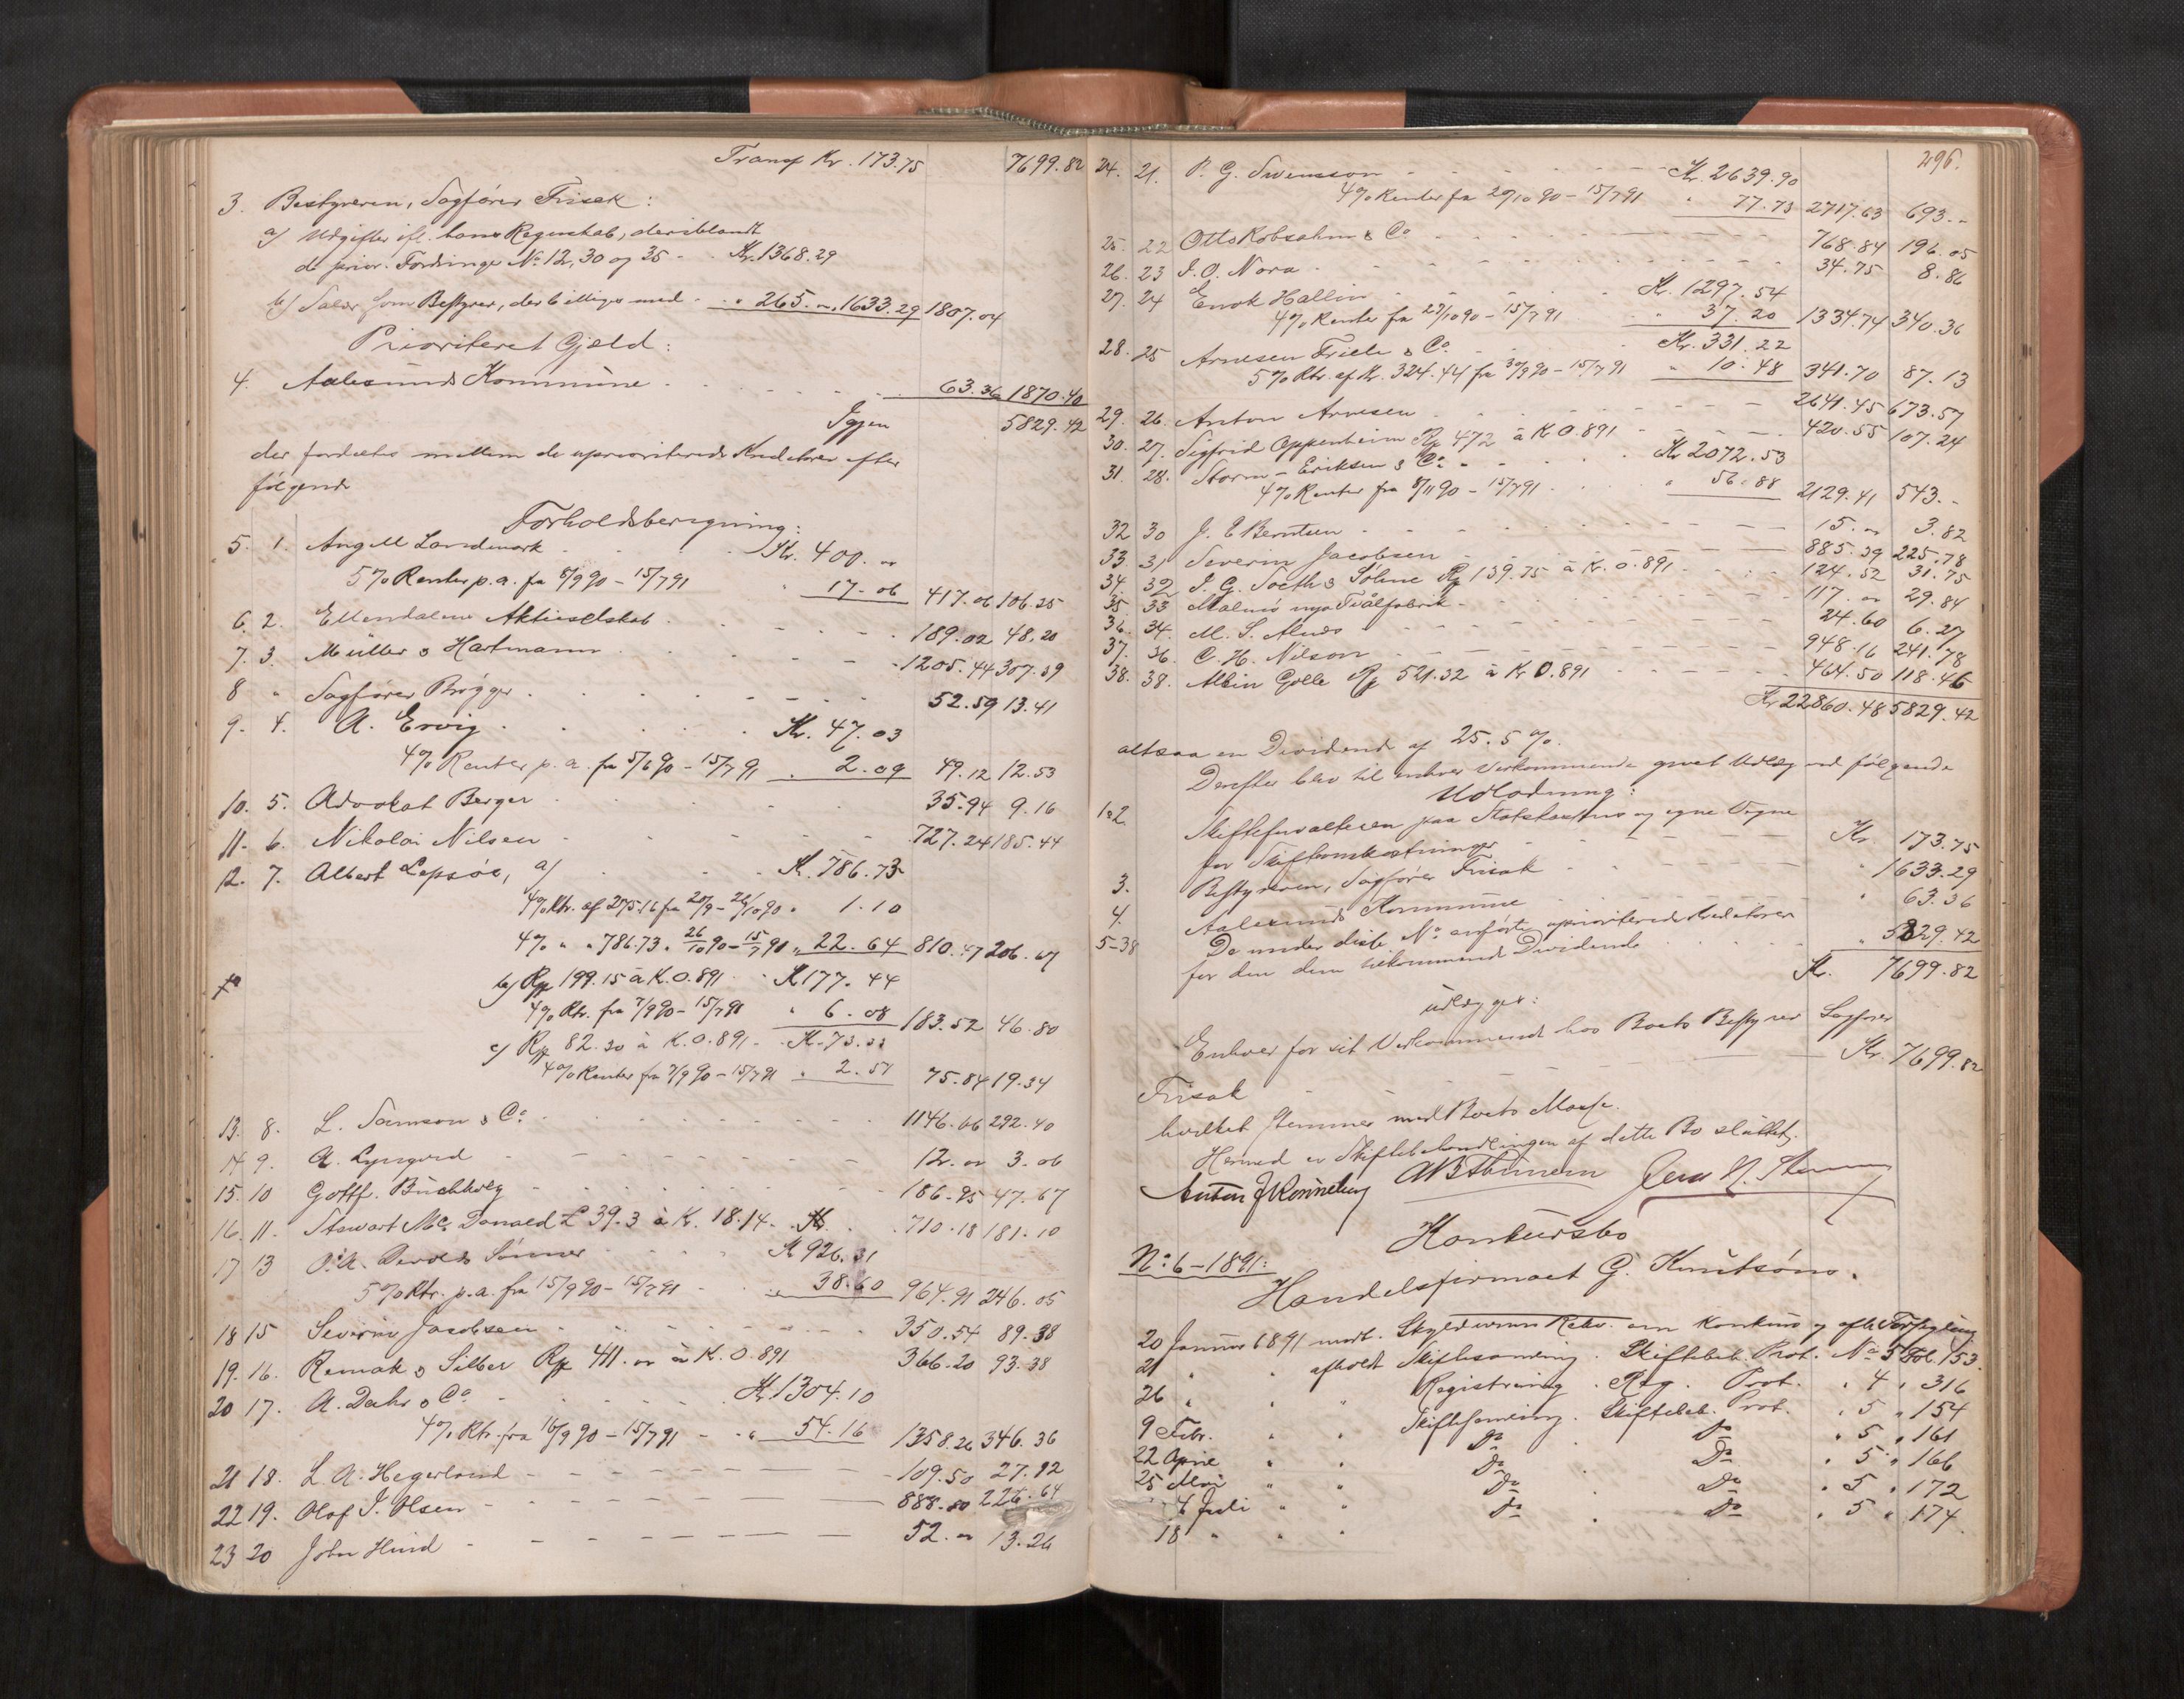 Transp Kr. 173.75 7699.82
3. Bestyreren, Sagfører Frisak:
a) Udgifter ifl. hans Regnskab, deriblandt
de prior. Fordringer No 12, 30 og 35 - Kr. 1368.29
b) Salær som Bestyrer, der billiges med " 265. " 1633.29 1807.04
Prioriteret Gjæld:
4. Aalesunds Kommune 63.36 1870.40
Igjen 5829.42
der fordeles mellem de uprioriterede Kreditorer efter
følgende
Forholdsberegning:
5. 1. Angell Landmark Kr. 400. "
5% Renter p.a. fra 8/9 90 - 15/7 91 " 17.06 417.06 106.35
6. 2. Ellendalens Aktieselskab 189.02 48.20
7. 3. Müller & Hartmann 1205.44 307.39
8 " Sagfører Brøgger 52.59 13.41
9. 4. A. Ervig Kr. 47.03
4% Renter p.a. fra 5/6 90 - 15/7 91 " 2.09 49.12 12.53
10. 5. Advokat Berger 35.94 9.16
11. 6. Nikolai Nilsen 727.24 185.44
12. 7. Albert Lepsøe, a) K. 786.73
4% Rtr. af 275.16 fra 20/9 - 26/10 90 " 1.10
4% " " 786.73 " 26/10 90 - 15/7 91 " 22.64 810.47 206.67
b) Rp 199.15 à K. 0.891 K 177.44
4% Rtr. fra 7/9 90 - 15/7 91 " 6.08 183.52 46.80
c) Rp 82.30 à K. 0.891 - K. 73.33
4% Renter fra 7/9 90 - 15/7 91 " 2.51 75.84 19.34
13. 8. L. Samson & Co 1146.66 292.40
14 9. A. Lyngved 12. " 3.06
15. 10 Gottf. Buchholz 186.95 47.67
16. 11. Stewart Mc Donald £ 39.3 à K. 18.14 710.18 181.10
17 13 O. A. Devolds Sønner K 926.31
5% Rtr. p.a. fra 15/9 90 - 15/7 91 " 38.60 964.91 246.05
18 15 Severin Jacobsen 350.54 89.38
19. 16. Remak & Silber Rp 411. " à K. 0.891 366.20 93.38
20 17. A. Dahr & Co Kr. 1304.10
4% Rtr. fra 16/9 90 - 15/7 91 " 54.16 1358.26 346.36
21 18. L. A. Hegerland 109.50 27.92
22 19. Olaf J. Olsen 888.80 226.64
23 20 John Hind 52. " 13.26
296.
24. 21. P. G. Swensson Kr. 2639.90
4% Renter fra 20/10 90 - 15/7 91 " 77.73 2717.63 693. -
25. 22 Otto Robsahm & Co 768.84 196.05
26. 23 J. O. Nora 34.75 8.86
27. 24 Enok Hallin Kr. 1297.54
4% Renter fra 29/10 90 - 15/7 91 " 37.20 1334.74 340.36
28. 25 Arnesen Friele & Co Kr. 331.22
5% Rtr. af Kr. 324.44 fra 30/9 90 - 15/7 91 " 10.48 341.70 87.13
29. 26. Anton Arnesen 2641.45 673.57
30. 27. Sigfrid Oppenheim Rp 472 à K 0.891 420.55 107.24
31. 28. Storm - Eriksen & Co Kr 2072.53
4% Renter fra 8/11 90 - 15/7 91 " 56.88 2129.41 543. -
32 30 J. E Berntsen 15. " 3.82
33. 31 Severin Jacobsen 885.39 225.78
34. 32 J. G. Soeth & Söhne Rp 139.75 à K. 0.891 124.52 31.75
35 33 Malmö nya Tvålfabrik 117. " 29.84
36. 34. M. S. Alnæs 24.60 6.27
37. 36. C. H. Nilson 948.16 241.78
38. 38. Albin Golle Rp 521.32 à K 0.891 464.50 118.46
Kr 22860.48 5829.42
altsaa en Dividende af 25.5%.
Derefter blev til enhver Vedkommende gjort Udlæg ved følgende
Udlodning:
1 & 2. Skifteforvalteren paa Statskassens og egne Vegne
for Skifteomkostninger Kr 173.75
3. Bestyreren, Sagfører Frisak " 1633.29
4. Aalesunds Kommune " 63.36
5-38 De under disse No anførte uprioriterede Kreditorer
for den dem tilkommende Dividende " 5829.42
Kr. 7699.82
udlægges:
Enhver for sit Vedkommende hos Boets Bestyrer Sagfører
Frisak Kr. 7699.82
hvilket stemmer med Boets Masse.
Hermed er Skiftebehandlingen af dette Bo sluttet.
Anton J Rønneberg
Konkursbo
No: 6 - 1891:
Handelsfirmaet G. Knutsøns.
20 Januar 1891 modt. Skyldnerens Rekv. om Konkurs og efter Forsegling
21 " " afholdt Skiftesamling. Skiftebeh. Prot. No 5 Fol. 153.
26 " " Registrering. Reg. Prot. " 4 " 316
9 Febr. " " Skiftesamling. Skiftebeh. Prot. " 5 " 154
22 April " " Do Do " 5 " 161
25 Mai " " Do Do " 5 " 166
4 Juli " " Do Do " 5 " 172
18 " " " Do Do " 5 " 174